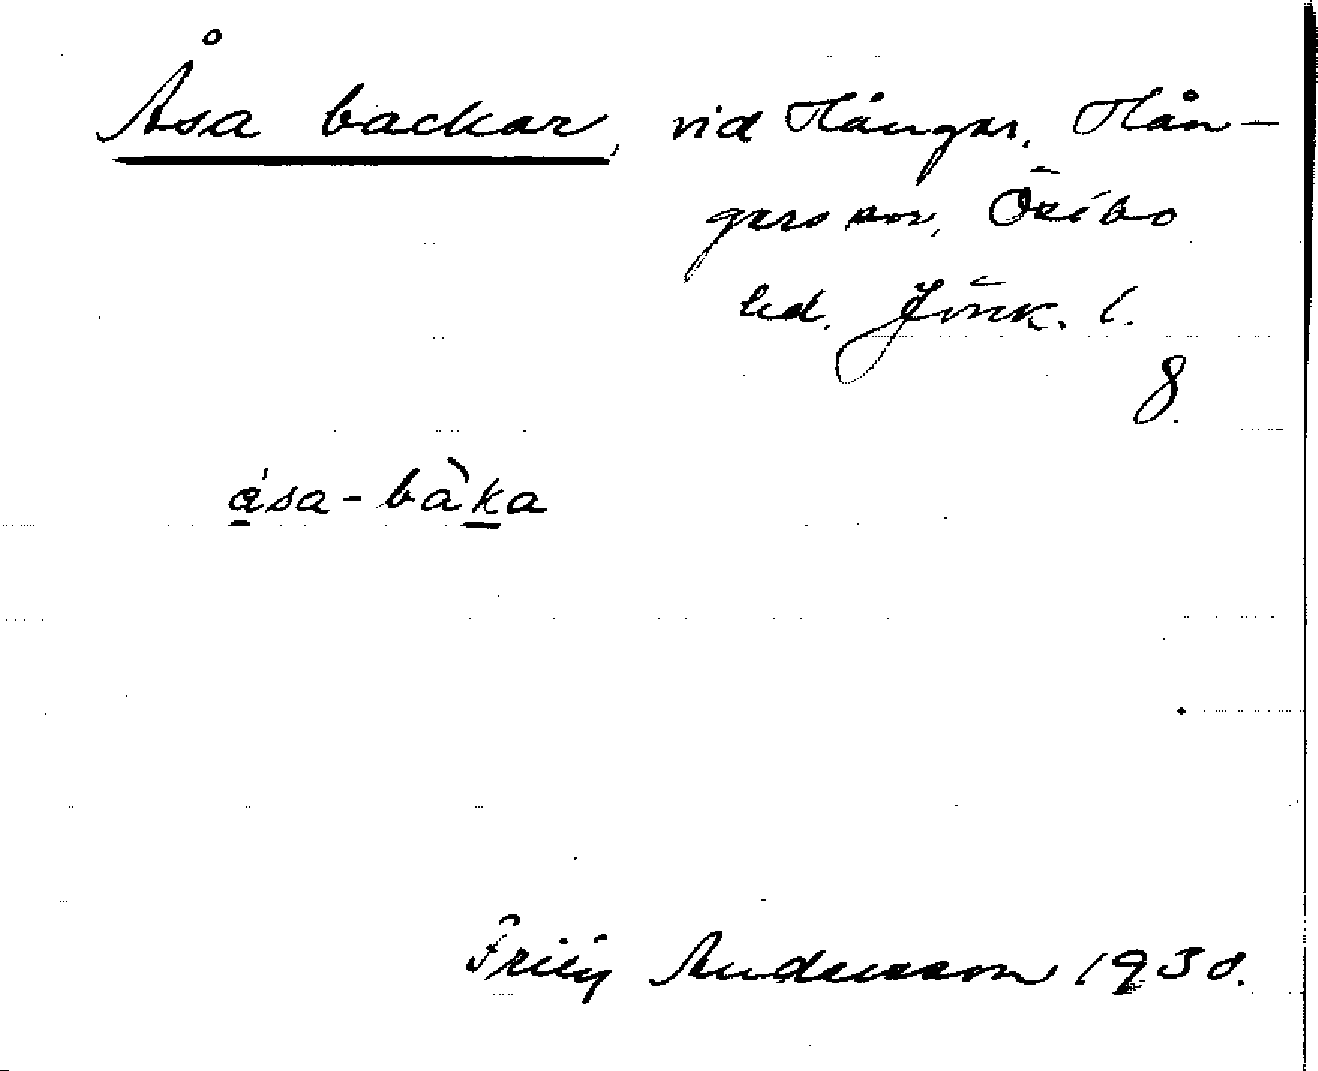 Åsa backar, vid Hångar, Hån-
gers sn, Östbo
hd. Jönk. l.
8.
åsa-bàka
Andersson 1930.